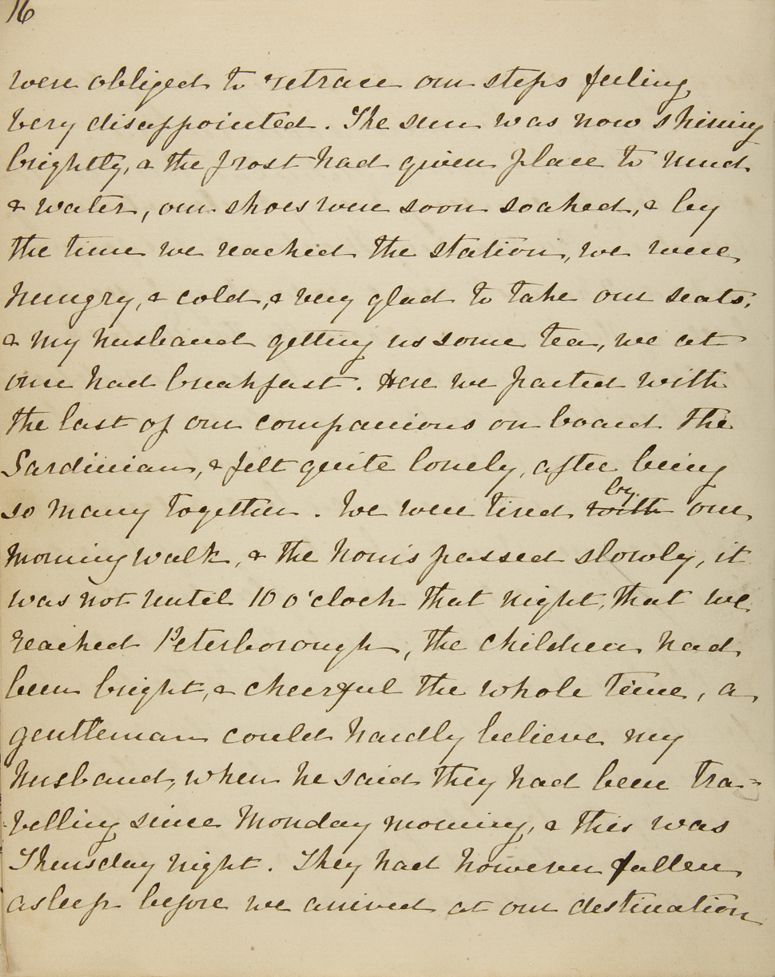 16
were obliged to retrace our steps feeling
very disappointed. The sun was now shining
brightly, & the frost had given place to mud
& water, our shoes were soon soaked, & by
the time we reached the station, we were
hungry, & cold, & very glad to take our seats,
& my husband getting us some tea, we at
once had breakfast. Here we parted with
the last of our companions on board the
Sardinian, & felt quite lonely, after being
so many together. We were tired with by our
morning walk, & the hours passed slowly, it
was not until 10 o'clock that night, that we
reached Peterborough, the children had
been bright, & cheerful the whole time, a
gentleman could hardly believe my
husband, when he said they had been tra-
velling since Monday morning, & this was
Thursday night. They had however fallen
asleep before we arrived at our destination